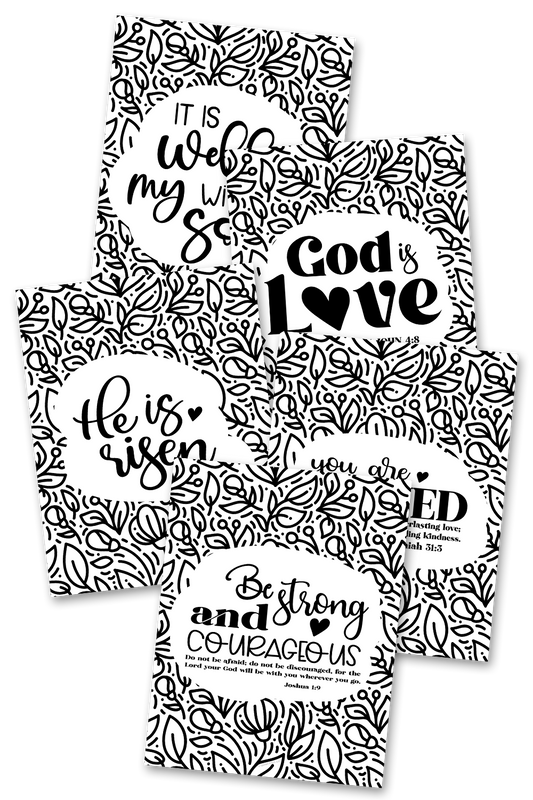 IT IS
my
God is
Love
4:8
He is
risen
you are
ling kindness.
iah 31:3
Be strong
and
COURAGEOUS
Do not be afraid; do not be discouraged, for the
Lord your God will be with you wherever you go.
Joshua 1:9